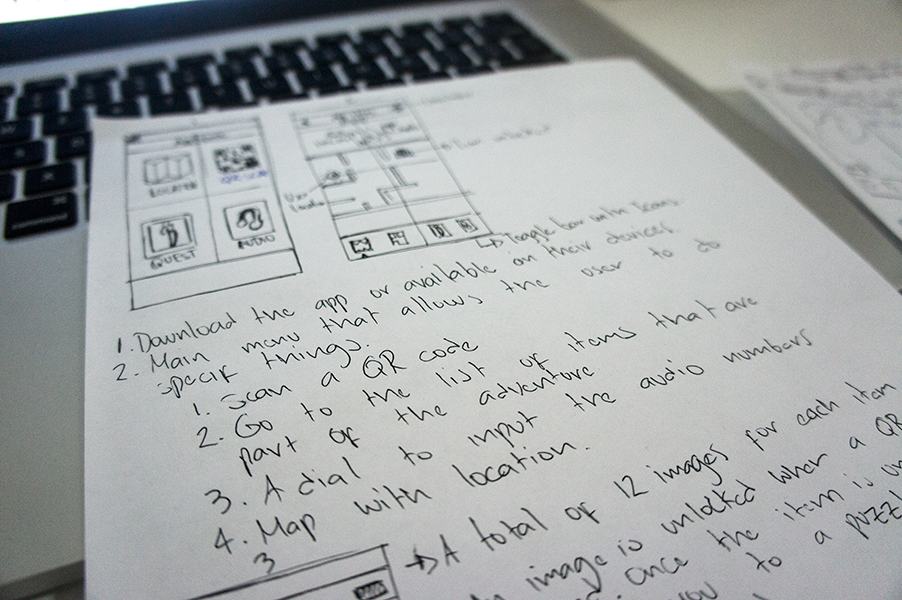 LOCATER
QR-SCAN
QUEST
AUDIO
User
Toggle bar with Icons
1. Download the app or available on their devices.
2. Main menu that allows the user to do
specif things.
1. Scan a QR code
2. Go to the list of items that are
part of the adventure
3. A dial to input the audio numbers
4. Map with location.
3
A total of 12 images for each item
image is unlocked when a QR
once the item is
you to a puzzl
command